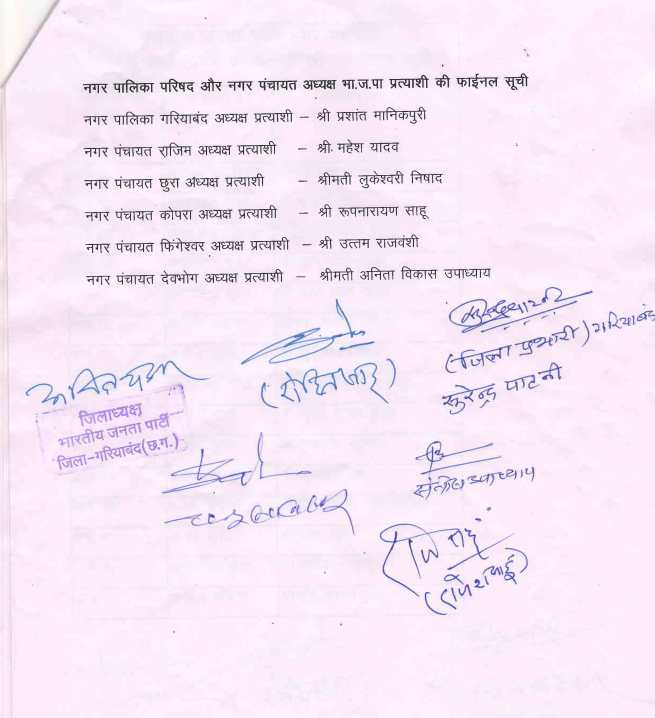 नगर पालिका परिषद और नगर पंचायत अध्यक्ष भा.ज.पा प्रत्याशी की फाईनल सूची
नगर पालिका गरियाबंद अध्यक्ष प्रत्याशी – श्री प्रशांत मानिकपुरी
नगर पंचायत राजिम अध्यक्ष प्रत्याशी – श्री महेश यादव
नगर पंचायत छुरा अध्यक्ष प्रत्याशी – श्रीमती लुकेश्वरी निषाद
नगर पंचायत कोपरा अध्यक्ष प्रत्याशी – श्री रूपनारायण साहू
नगर पंचायत फिंगेश्वर अध्यक्ष प्रत्याशी – श्री उत्तम राजवंशी
नगर पंचायत देवभोग अध्यक्ष प्रत्याशी – श्रीमती अनिता विकास उपाध्याय
(जिला प्रभारी) गरियाबंद
सुरेन्द्र पाटनी
जिलाध्यक्ष
भारतीय जनता पार्टी
जिला–गरियाबंद(छ.ग.)
उपाध्याय